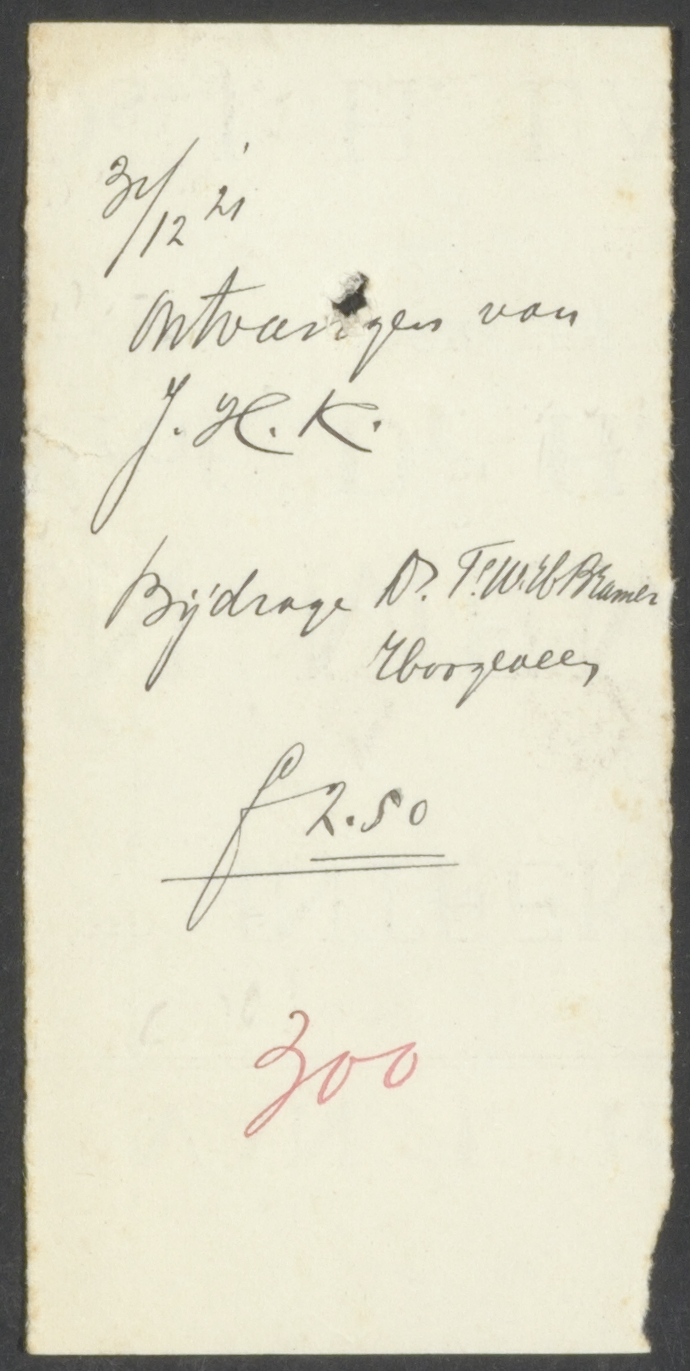 31/12 '21
Ontvangen van
J. H. K.
Bijdrage Dr. W. H. Bramer
Hoogeveen
f 2.50
300